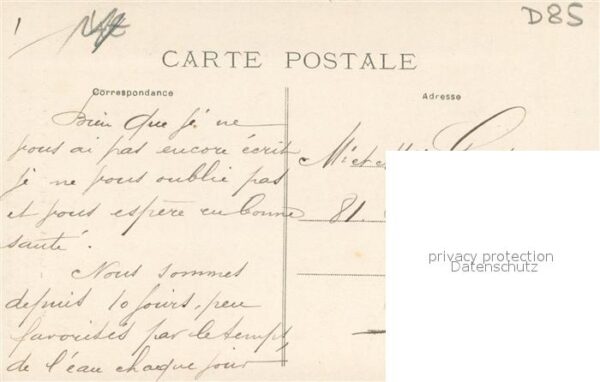 1
D85
CARTE POSTALE
Correspondance
Adresse
Bien que je ne
vous ai pas encore écrit
je ne vous oublie pas
et vous espère en bonne
santé.
Nous sommes
depuis 10 jours, peu
favorisés par le temps,
de l'eau chaque jour
M et
81.
privacy protection
Datenschutz